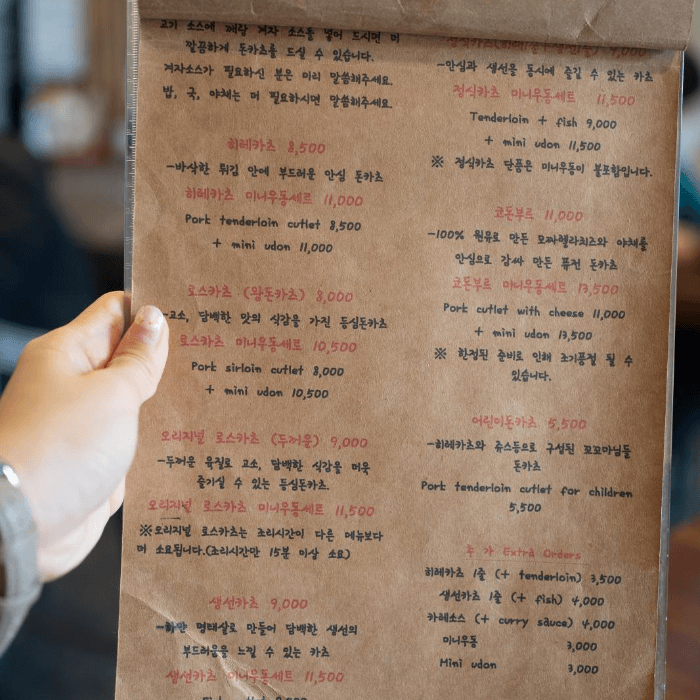 고기 소스에 깨랑 겨자 소스를 넣어 드시면 더
깔끔하게 돈카츠를 드실 수 있습니다.
겨자소스가 필요하신 분은 미리 말씀해주세요.
밥, 국, 야채는 더 필요하시면 말씀해주세요.
히레카츠 8,500
-바삭한 튀김 안에 부드러운 안심 돈카츠
히레카츠 미니우동세트 11,000
Pork tenderloin cutlet 8,500
+ mini udon 11,000
로스카츠 (왕돈카츠) 8,000
-고소, 담백한 맛의 식감을 가진 등심돈카츠
로스카츠 미니우동세트 10,500
Pork sirloin cutlet 8,000
+ mini udon 10,500
오리지널 로스카츠 (두꺼운) 9,000
-두꺼운 육질로 고소, 담백한 식감을 더욱
즐기실 수 있는 등심돈카츠.
오리지널 로스카츠 미니우동세트 11,500
※오리지널 로스카츠는 조리시간이 다른 메뉴보다
더 소요됩니다.(조리시간만 15분 이상 소요)
생선카츠 9,000
-하얀 명태살로 만들어 담백한 생선의
부드러움을 느낄 수 있는 카츠
생선카츠 미니우동세트 11,500
9,000
-안심과 생선을 동시에 즐길 수 있는 카츠
정식카츠 미니우동세트 11,500
Tenderloin + fish 9,000
+ mini udon 11,500
※ 정식카츠 단품은 미니우동이 불포함입니다.
코돈부르 11,000
-100% 원유로 만든 모짜렐라치즈와 야채를
안심으로 감싸 만든 퓨전 돈카츠
코돈부르 미니우동세트 13,500
Pork cutlet with cheese 11,000
+ mini udon 13,500
※ 한정된 준비로 인해 조기품절 될 수
있습니다.
어린이돈카츠 5,500
-히레카츠와 쥬스등으로 구성된 꼬꼬마님들
돈카츠
Pork tenderloin cutlet for children
5,500
추 가 Extra Orders
히레카츠 1줄 (+ tenderloin) 3,500
생선카츠 1줄 (+ fish) 4,000
카레소스 (+ curry sauce) 4,000
미니우동 3,000
Mini udon 3,000